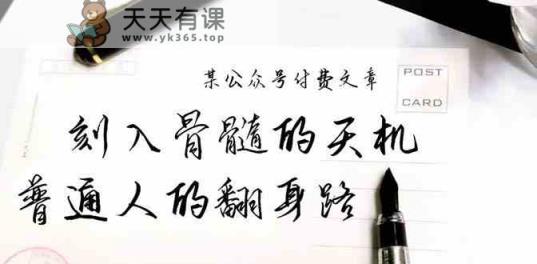 天天有课
www.yk365.top
某公众号付费文章
POST
CARD
刻入骨髓的天机
普通人的翻身路